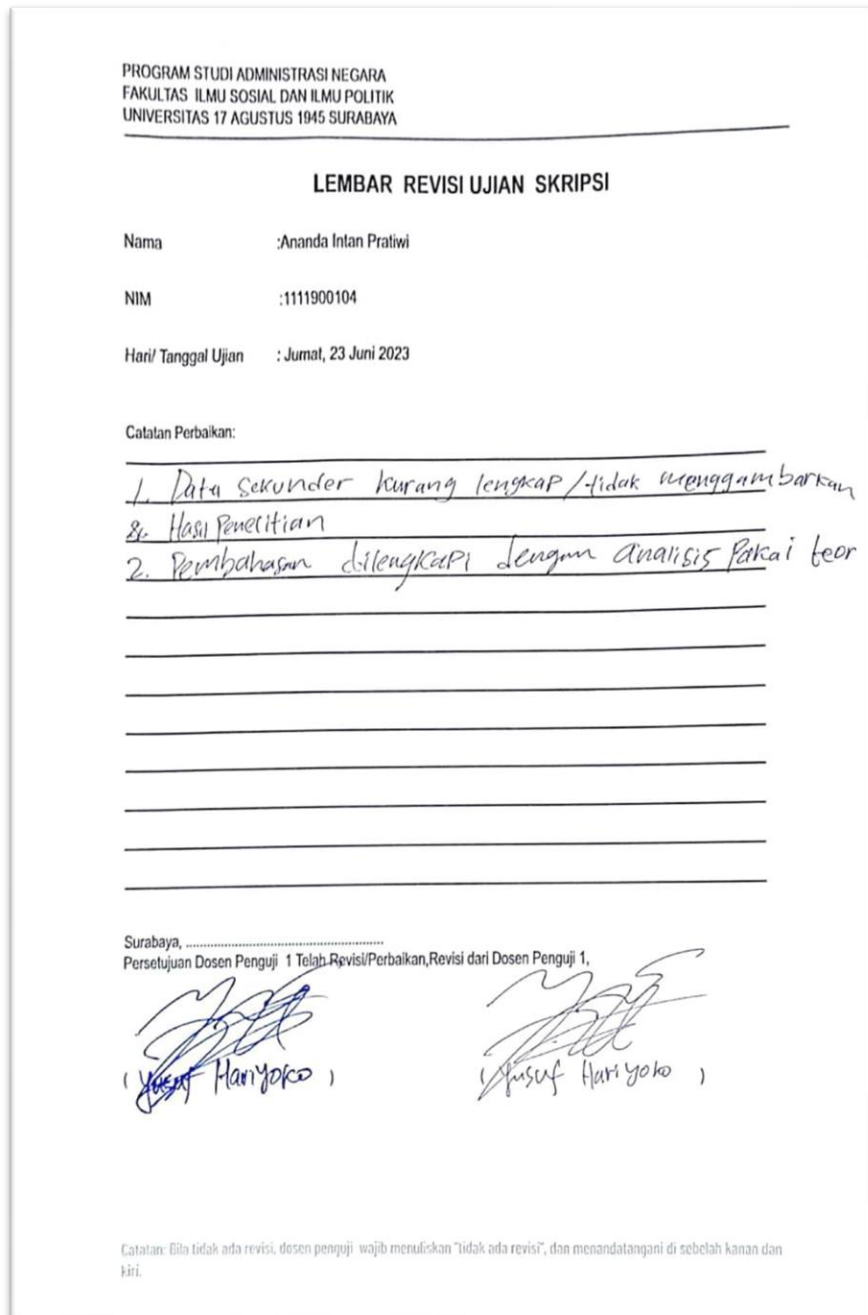 PROGRAM STUDI ADMINISTRASI NEGARA
FAKULTAS ILMU SOSIAL DAN ILMU POLITIK
UNIVERSITAS 17 AGUSTUS 1945 SURABAYA
LEMBAR REVISI UJIAN SKRIPSI
Nama :Ananda Intan Pratiwi
NIM :1111900104
Hari/ Tanggal Ujian : Jumat, 23 Juni 2023
Catatan Perbaikan:
1. Data Sekunder kurang lengkap/tidak menggambarkan
Hasil Penelitian
2. Pembahasan dilengkapi dengan analisis Pakai teor
Surabaya, ............................................................
Persetujuan Dosen Penguji 1 Telah Revisi/Perbaikan,Revisi dari Dosen Penguji 1,
( Yusuf Hariyoko ) ( Yusuf Hariyoko )
Catatan: Bila tidak ada revisi, dosen penguji wajib menuliskan "tidak ada revisi", dan menandatangani di sebelah kanan dan
kiri.